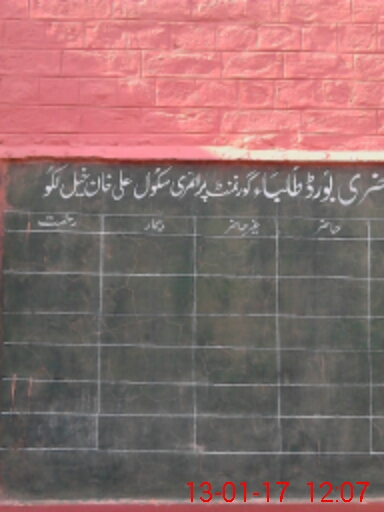 ضری بورڈ طلباء گورنمنٹ پرائمری سکول علی خان خیل لکو
حاضر غیر حاضر بیمار رخصت
13-01-17 12.07